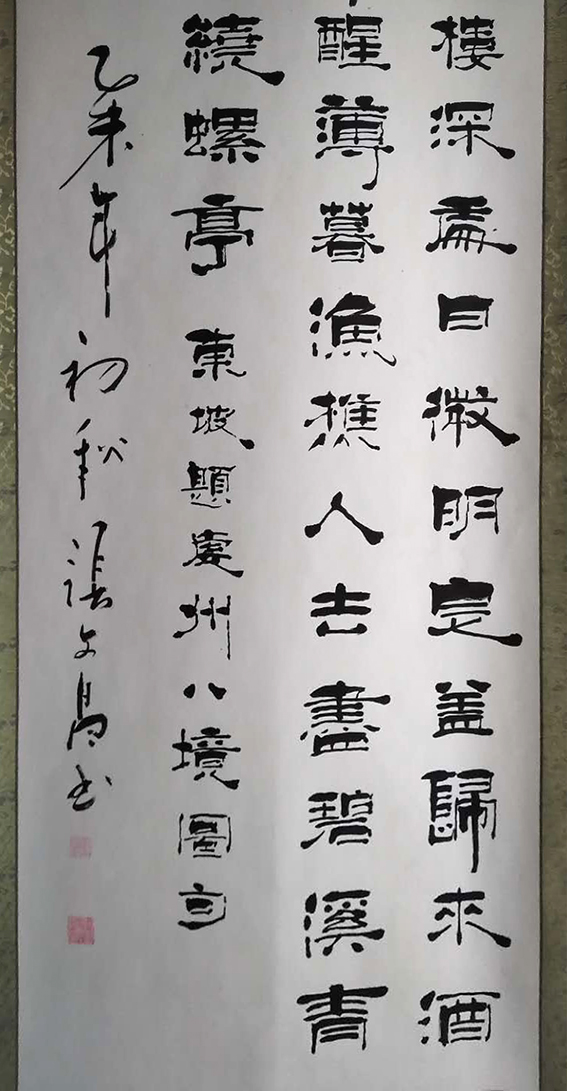 樓深處日微明皂盖歸來酒
醒薄暮漁樵人去盡碧溪青
繞螺亭 東坡題虔州八境圖句
乙未年初秋張文昌书